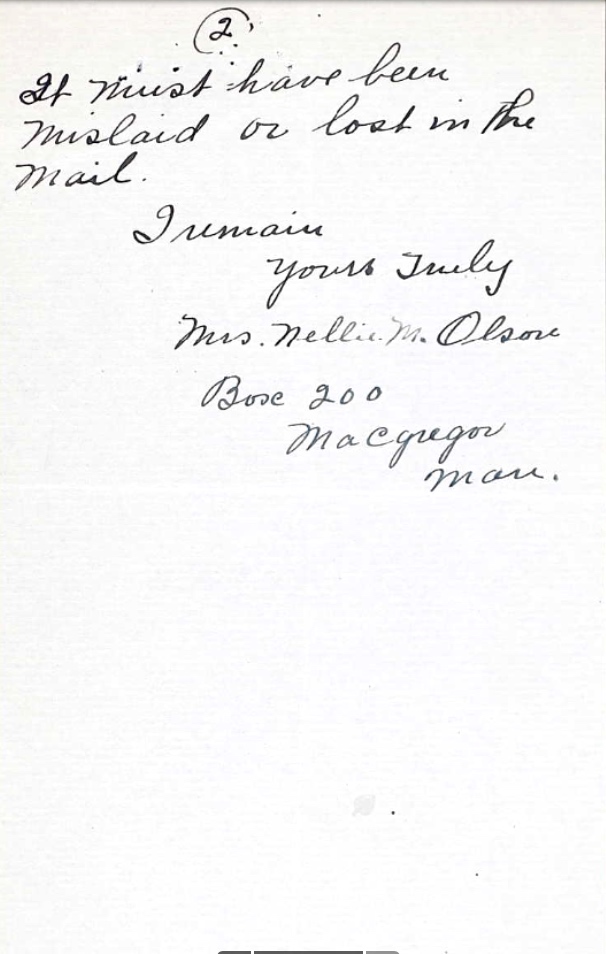 2
It must have been
mislaid or lost in the
mail.
I remain
Yours Truly
Mrs. Nellie M. Olson
Box 200
MacGregor
Man.